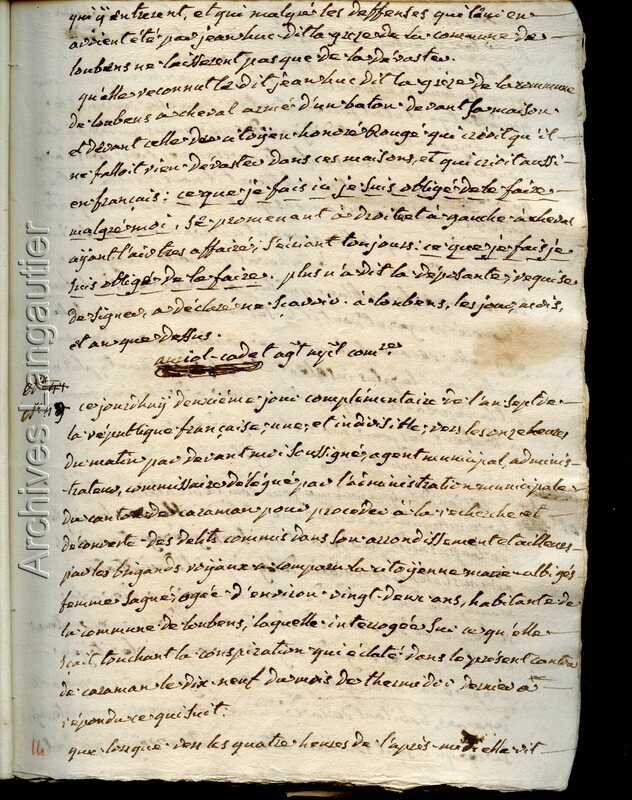 qui y entrerent, et qui malgré les deffenses qui leur en
avoient été par jean huc dit la greze de la commune de
loubens ne laisserent pas que de la dévaster.
qu'elle reconnut le dit jean huc dit la greze de la commune
de loubens à cheval armé d'un baton devant sa maison
et devant celle du citoyen honoré Rougé qui crioit qu'il
ne falloit rien dévaster dans ces maisons, et qui crioit aussi
en français: ce que je fais ici je suis obligé de le faire
malgré moi, se promenant à droite et à gauche à cheval
ayant l'air très affairé, s'ecriant toujours: ce que je fais je
suis obligé de le faire. plus n'a dit la déposante, requise
de signer, a déclaré ne sçavoir. à loubens, les jour, mois,
et an que dessus.
auriol-cadet agt mpl comre.
ce jourdhuy deuxième jour complémentaire de l'an sept de
la république française, une, et indivisible, vers les onze heures
du matin par devant moi soussigné, agent municipal, adminis-
trateur, commissaire délégué par l'administration municipale
du canton de caraman pour proceder à la recherche et
découverte des delits commis dans son arrondissement et ailleurs
par les brigands royaux a comparu la citoyenne marie albigés
femme sagné, agée d'environ vingt deux ans, habitante de
la commune de loubens, laquelle interrogée sur ce qu'elle
sçait touchant la conspiration qui éclaté dans le présent canton
de caraman le dix neuf du mois de thermidor dernier a
répondu ce qui suit.
que lorsque vers les quatre heures de l'après-midi elle vit
14
Archives Lengautier